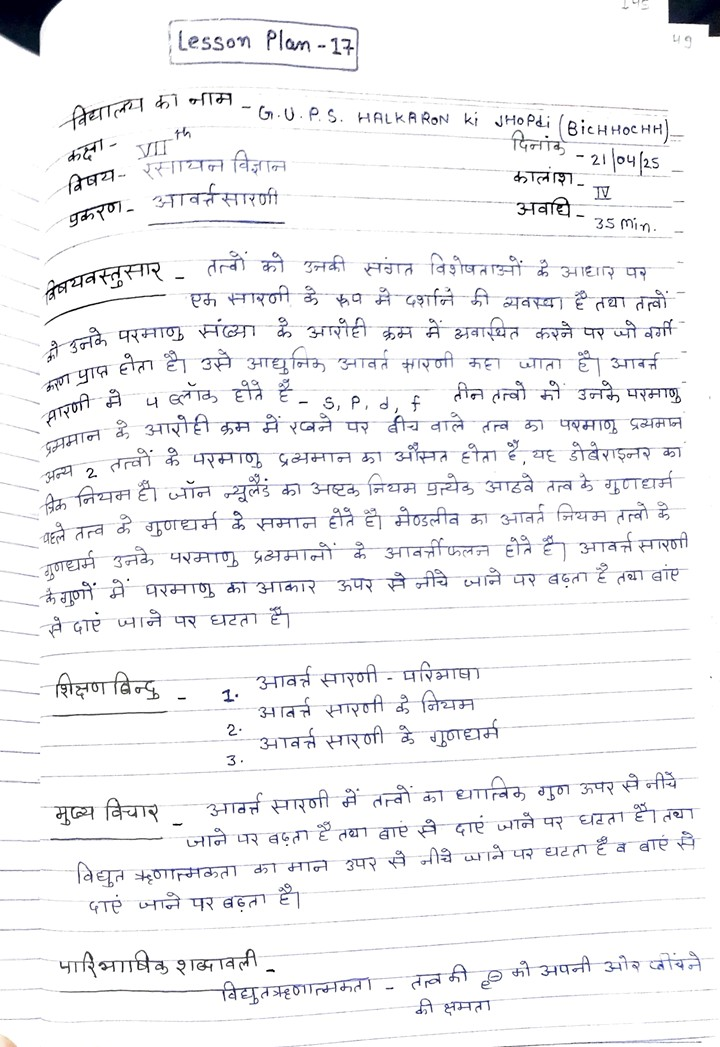 145
49
Lesson Plan - 17
विद्यालय का नाम - G.U.P.S. HALKARON Ki JHOPdi (BICHHOCHH)
कक्षा - VII th
दिनांक - 21/04/25
विषय - रसायन विज्ञान
कालांश - IV
प्रकरण - आवर्त्त सारणी
अवधि - 35 min.
विषयवस्तुसार - तत्वों को उनकी संगत विशेषताओं के आधार पर
एक सारणी के रूप में दर्शाने की व्यवस्था है तथा तत्वों
को उनके परमाणु संख्या के आरोही क्रम में अवास्थित करने पर जो वर्गी
करण प्राप्त होता है। उसे आधुनिक आवर्त सारणी कहा जाता है। आवर्त्त
सारणी में 4 ब्लॉक होते हैं - S, P, d, f तीन तत्वो को उनके परमाणु
द्रव्यमान के आरोही क्रम में रखने पर बीच वाले तत्व का परमाणु द्रव्यमान
अन्य 2 तत्वों के परमाणु द्रव्यमान का औसत होता है, यह डोबेराइनर का
त्रिक नियम है। जॉन न्यूलैंड का अष्टक नियम प्रत्येक आठवे तत्व के गुणधर्म
पहले तत्व के गुणधर्म के समान होते है। मेण्डलीव का आवर्त नियम तत्वो के
गुणधर्म उनके परमाणु द्रव्यमानों के आवर्त्तीफलन होते है। आवर्त्त सारणी
के गुणों में परमाणु का आकार ऊपर से नीचे जाने पर बढ़ता है तथा बांए
से दाएं जाने पर घटता है।
शिक्षण बिन्दु - 1. आवर्त्त सारणी - परिभाषा
2. आवर्त्त सारणी के नियम
3. आवर्त्त सारणी के गुणधर्म
मुख्य विचार - आवर्त्त सारणी में तत्वों का धात्विक गुण ऊपर से नीचे
जाने पर बढ़ता है तथा बाएं से दाएं जाने पर घटता है। तथा
विद्युत ऋणात्मकता का मान उपर से नीचे जाने पर घटता है व बाएं से
दाएं जाने पर बढ़ता है।
पारिभाषिक शब्दावली -
विद्युतऋणात्मकता - तत्व की e⊖ को अपनी ओर खींचने
की क्षमता